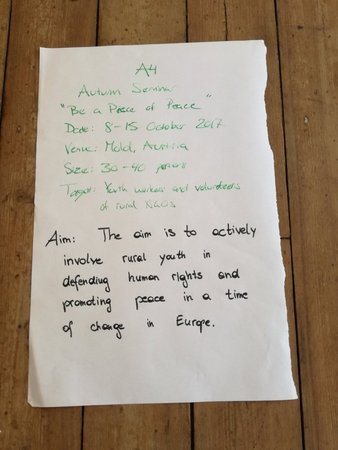 A4
Autumn Seminar
"Be a Peace of Peace"
Date: 8-15 October 2017
Venue: Mold, Austria
Size: 30-40
Target: Youth workers and volunteers
of rural NGOs
Aim: The aim is to actively
involve rural youth in
defending human rights and
promoting peace in a time
of change in Europe.